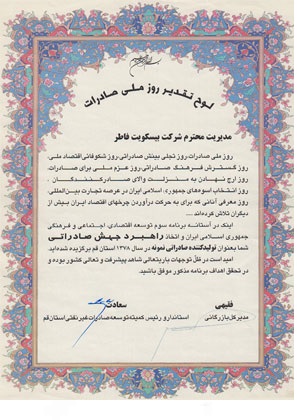 لوح تقدیر روز ملی صادرات
مدیریت محترم شرکت بیسکویت فاطر
روز ملی صادرات، روز تجلی بینش صادراتی، روز شکوفائی اقتصاد ملی،
روز گسترش فرهنگ صادراتی، روز عزم ملی برای صادرات،
روز ارج نهادن به منزلت والای صادرکنندگان،
روز انتخاب اسوه‌های جمهوری اسلامی ایران در عرصه تجارت بین‌المللی،
روز معرفی آنانی که برای به حرکت درآوردن چرخهای اقتصاد ایران بیش از
دیگران تلاش کرده‌اند ....
اینک در آستانه برنامه سوم توسعه اقتصادی، اجتماعی و فرهنگی
جمهوری اسلامی ایران و اتخاذ راهبرد جهش صادراتی
شما بعنوان تولیدکننده صادراتی نمونه در سال ۱۳۷۸ استان قم برگزیده شده‌اید.
امید است در ظل توجهات باریتعالی شاهد پیشرفت و تعالی کشور بوده و
در تحقق اهداف برنامه مذکور موفق باشید.
فقیهی
مدیرکل بازرگانی
سعادت
استاندار و رئیس کمیته توسعه صادرات غیرنفتی استان قم